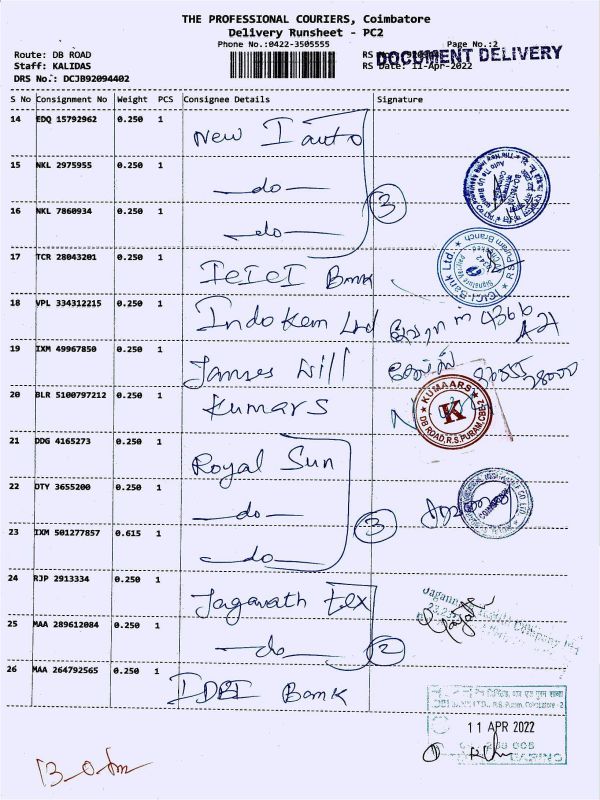 THE PROFESSIONAL COURIERS, Coimbatore
Delivery Runsheet - PC2
Phone No.:0422-3505555
Page No.:2
Route: DB ROAD
DOCUMENT DELIVERY
Staff: KALIDAS
RS Date: 11-Apr-2022
DRS No.: DCJB92094402
S No Consignment No Weight PCS Consignee Details Signature
14 EDQ 15792962 0.250 1 New I auto
15 NKL 2975955 0.250 1 —do—
16 NKL 7860934 0.250 1 —do— 3
17 TCR 28043201 0.250 1 ICICI Bank
ICICI-Bank Ltd. R S Puram Branch
18 VPL 334312215 0.250 1 Indo Kem Ltd
19 IXM 49967850 0.250 1 James Dill
20 BLR 5100797212 0.250 1 Kumars
KUMAARS K DB ROAD, R.S.PURAM, CBE-2
21 DDG 4165273 0.250 1 Royal Sun
22 DTY 3655200 0.250 1 —do—
23 IXM 501277857 0.615 1 —do— 3
24 RJP 2913334 0.250 1 Jaganath Tex
25 MAA 289612084 0.250 1 —do— 2
26 MAA 264792565 1 IDBI Bank
R.S. Puram, Coimbatore - 2
11 APR 2022